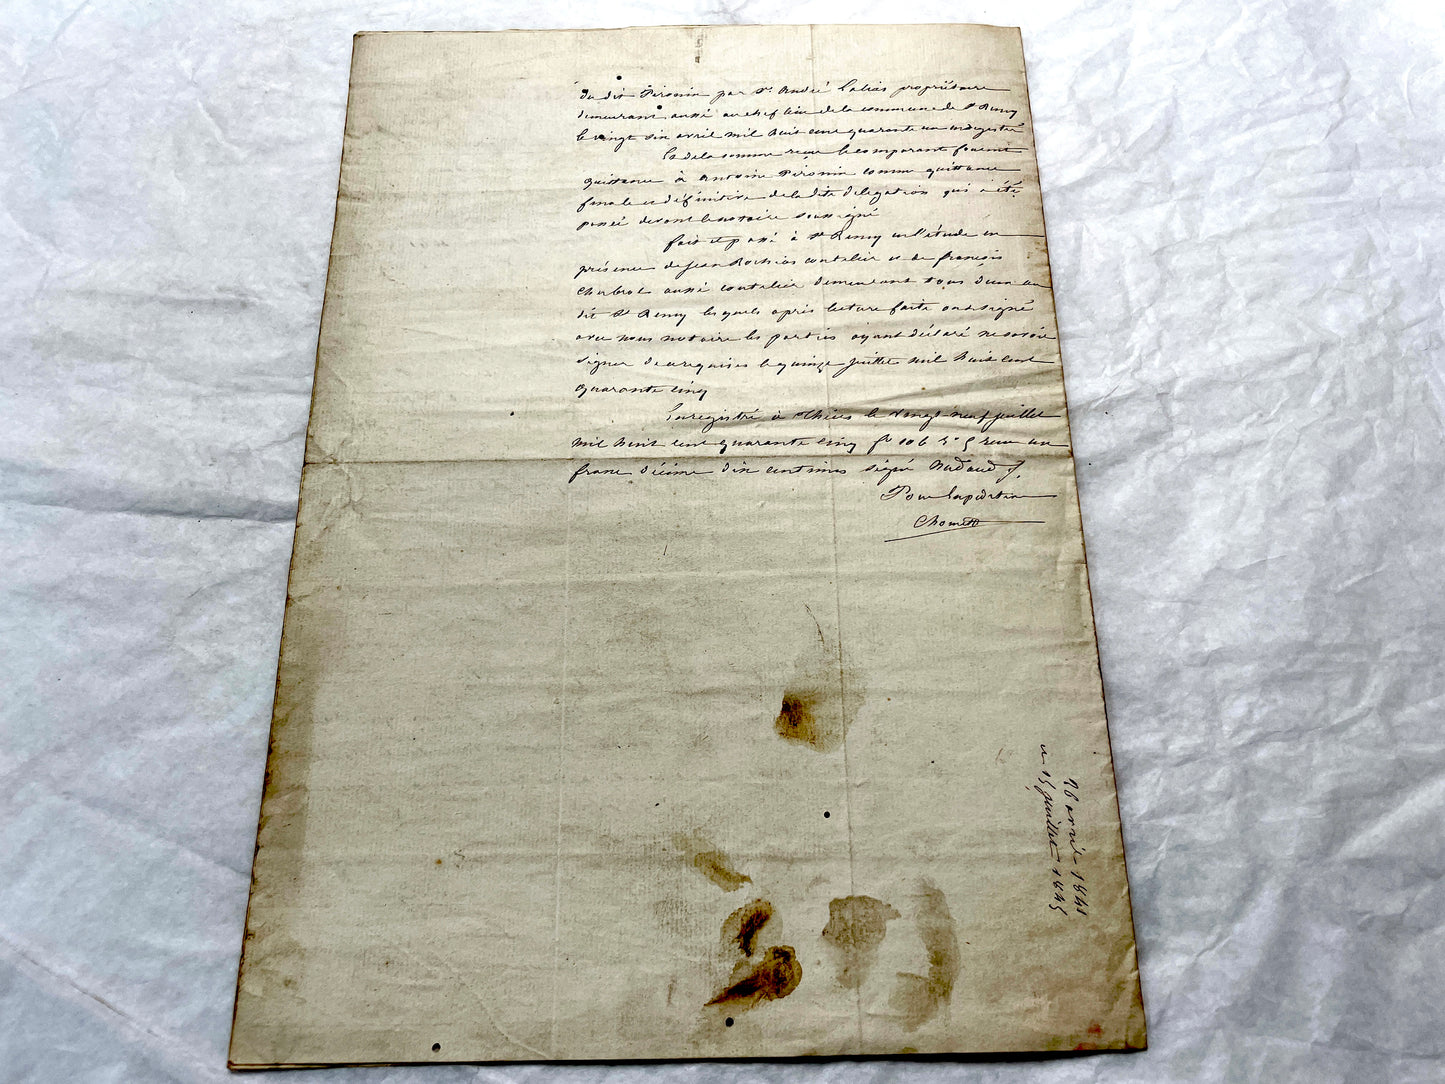 du dit Pironin par Sr André Cabias propriétaire
demeurant aussi au chef lieu de la commune de St Remy
le vingt six avril mil huit cent quarante un enregistré
De la somme reçue le comparant fournit
quittance à Antoine Pironin comme quittance
finale et définitive de la dite délégation qui a été
passée devant le notaire soussigné
fait et passé à St Remy en l'étude en
présence de Jean coutelier et de françois
Chabrol aussi coutelier demeurant tous deux au
dit St Remy lesquels après lecture faite ont signé
avec nous notaire les parties ayant déclaré ne savoir
signer de ce requises le quinze juillet mil huit cent
quarante cinq
Enregistré à Thiers le vingt neuf juillet
mil huit cent quarante cinq fo 106 reçu un
franc décime dix centimes signé
Pour Expédition
Chomett
26 avril 1841
et 15 juillet 1845